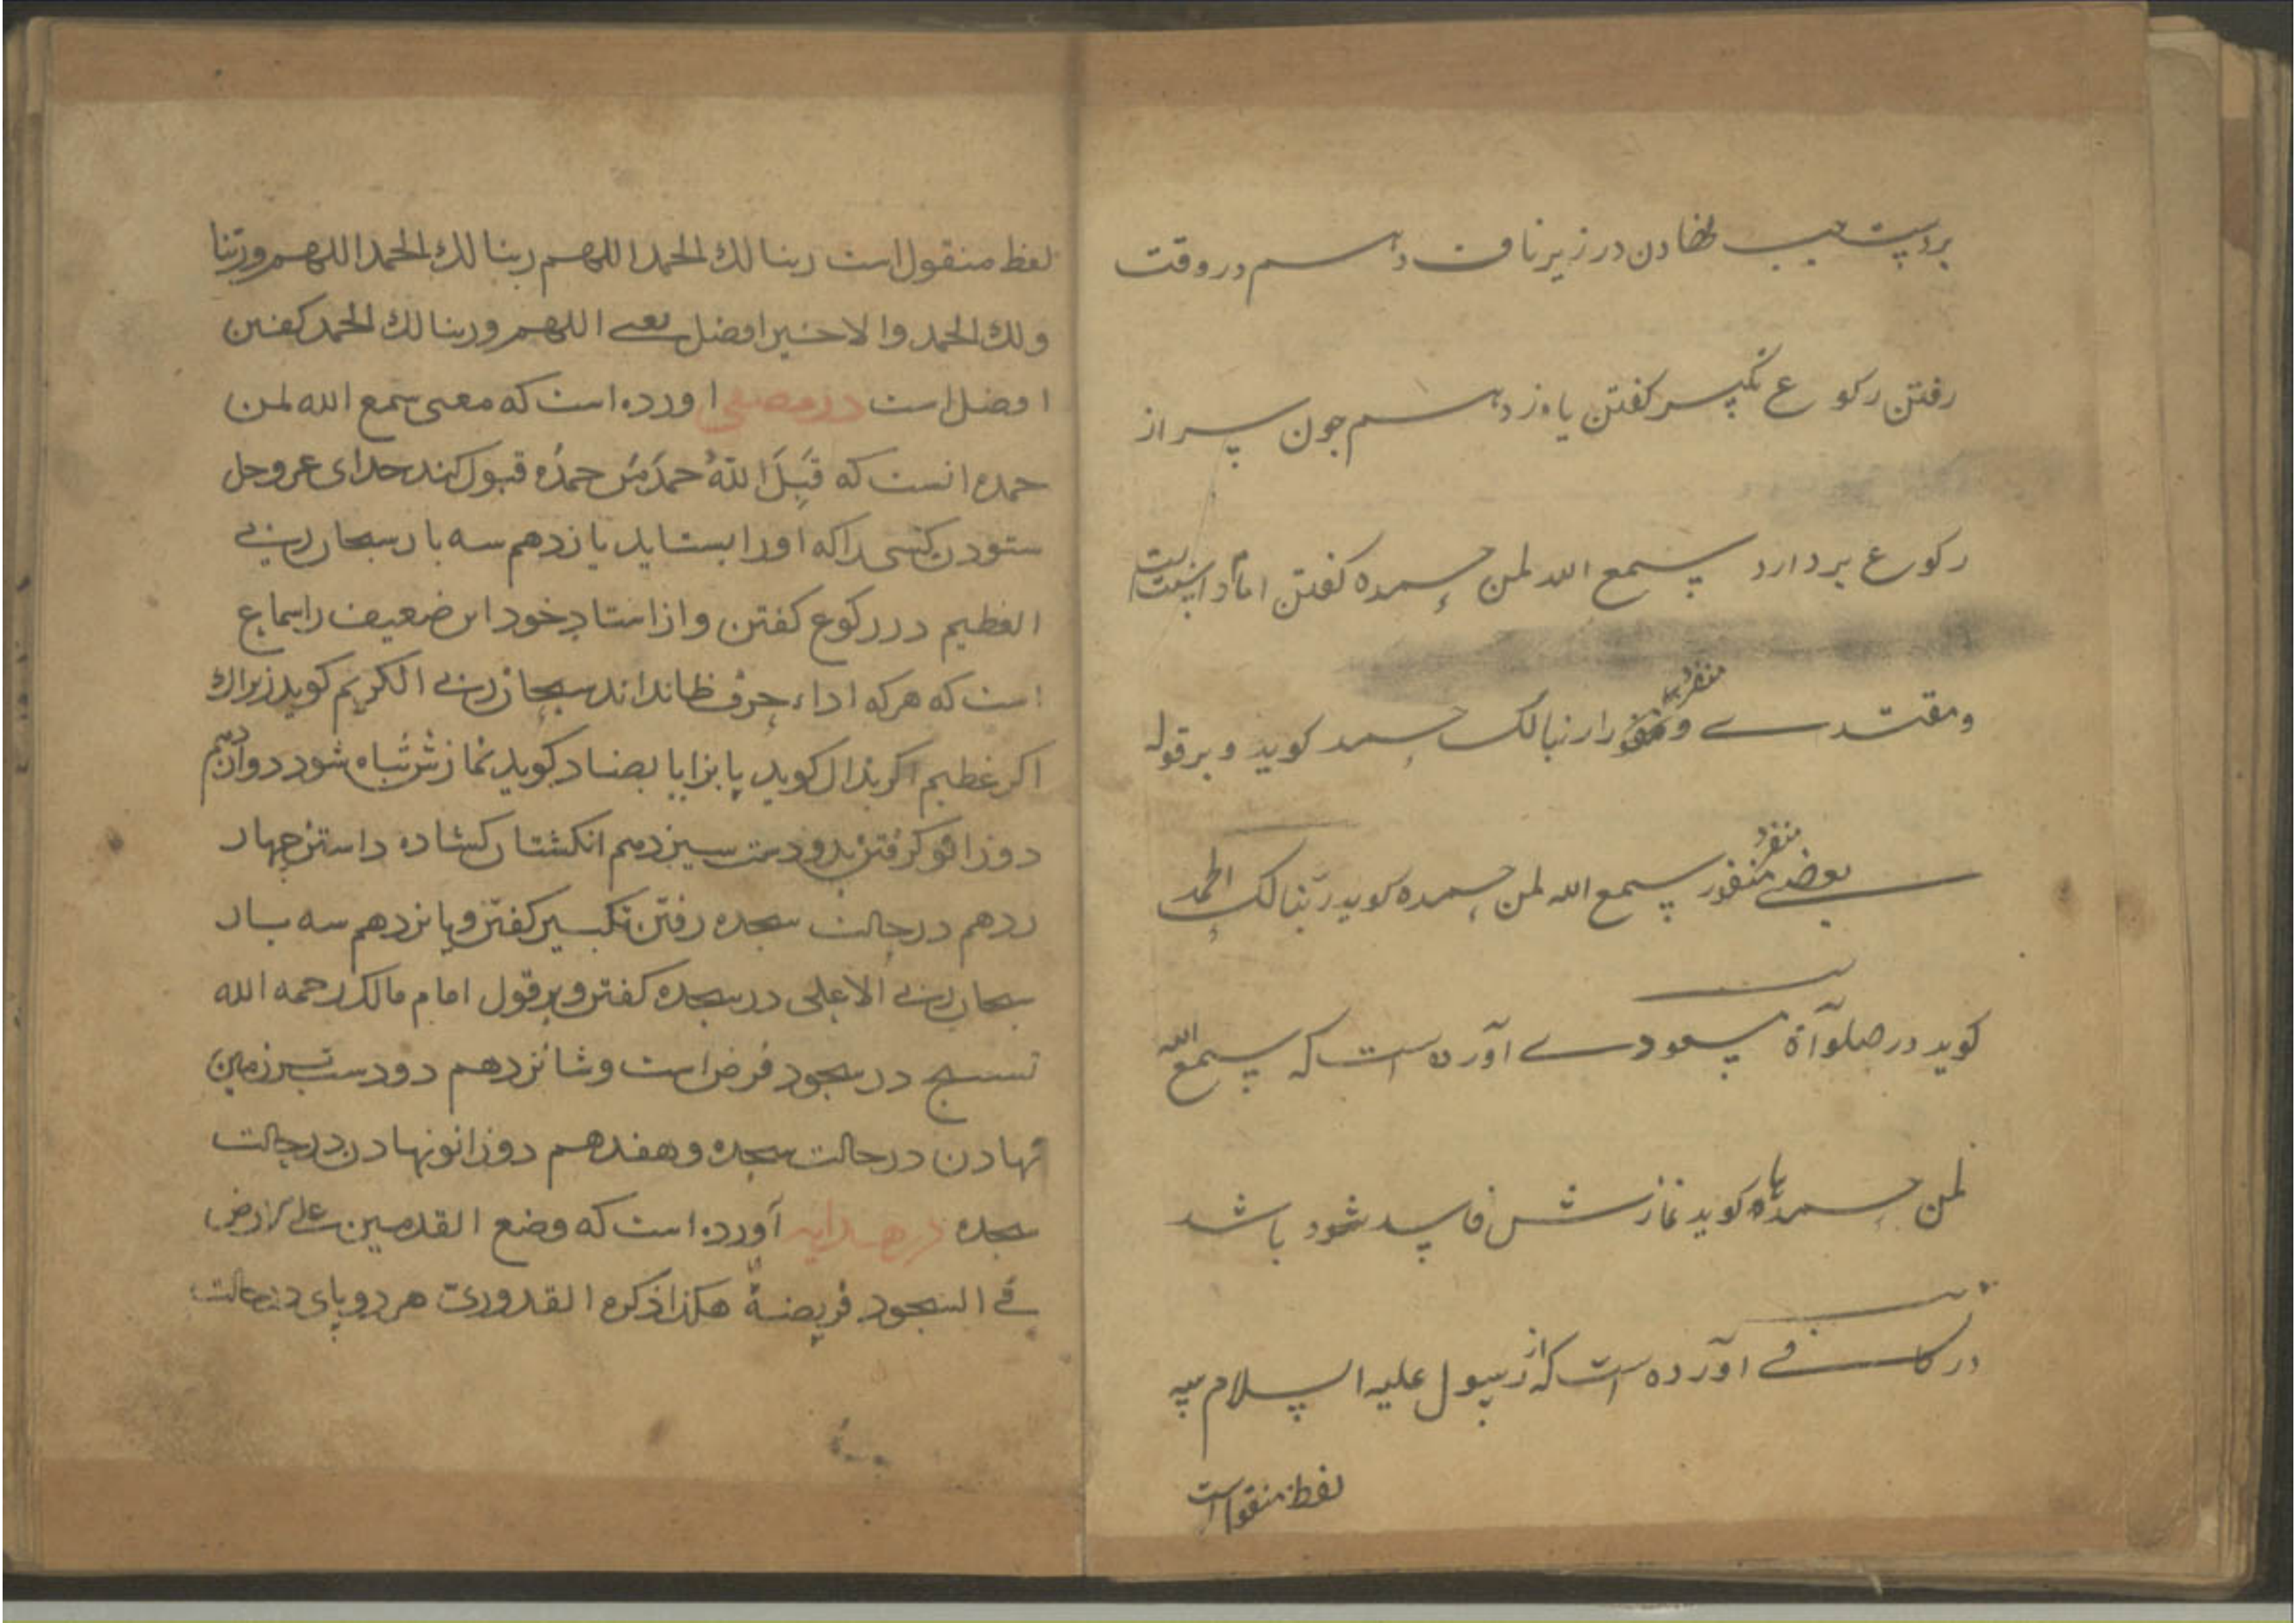 بردست چپ نهادن در زیر ناف دهم در وقت
رفتن رکوع تکبیر گفتن یازدهم چون سر از
رکوع بردارد سمع الله لمن حمده گفتن امام را است
ومقتدی و منفرد را ربنا لک حمد کوید و بر قول
بعضی منفرد سمع الله لمن حمده کوید ربنا لک الحمد
کوید در صلوآة مسعودی آورده است که سمع الله
لمن حمده کوید نمازش فاسد شود باشد
در کافی آورده است که از رسول علیه السلام سه
لفظ منقول است
لفظ منقول است ربنا لك الحمد اللهم ربنا لك الحمد اللهم وربنا
ولك الحمد والاخیر افضل یعنی اللهم وربنا لك الحمد کفتن
افضل است در مصفی اورده است که معنی سمع الله لمن
حمده انست که قَبِلَ اللهُ حمدَ مَن حمدَه قبول کند خدای عز وجل
ستودن کسی را که او را بستاید یازدهم سه بار سبحان ربی
العظیم در رکوع کفتن و از استاد خود این ضعیف را سماع
است که هر که اداء حرف ظا نداند سبحان ربی الکریم کوید زیراك
اکر عظیم اکر بذال کوید یا بزا یا بضاد کوید نمازش تباه شود دوازدهم
دو زانو کرفتن بدو دست سیزدهم انکشتان کشاده داشتن چهار
ردهم در حالت سجده رفتن تکبیر کفتن و پانزدهم سه بار
سبحان ربی الاعلی در سجده کفتن و بر قول امام مالك رحمه الله
تسبیح در سجود فرض است و شانزدهم دو دست بر زمین
نهادن در حالت سجده و هفدهم دو زانو نهادن در حالت
سجده در هدایه آورده است که وضع القدمین علی الارض
فی السجود فریضةٌ هکذا ذکره القدوری هر دو پای در حالت